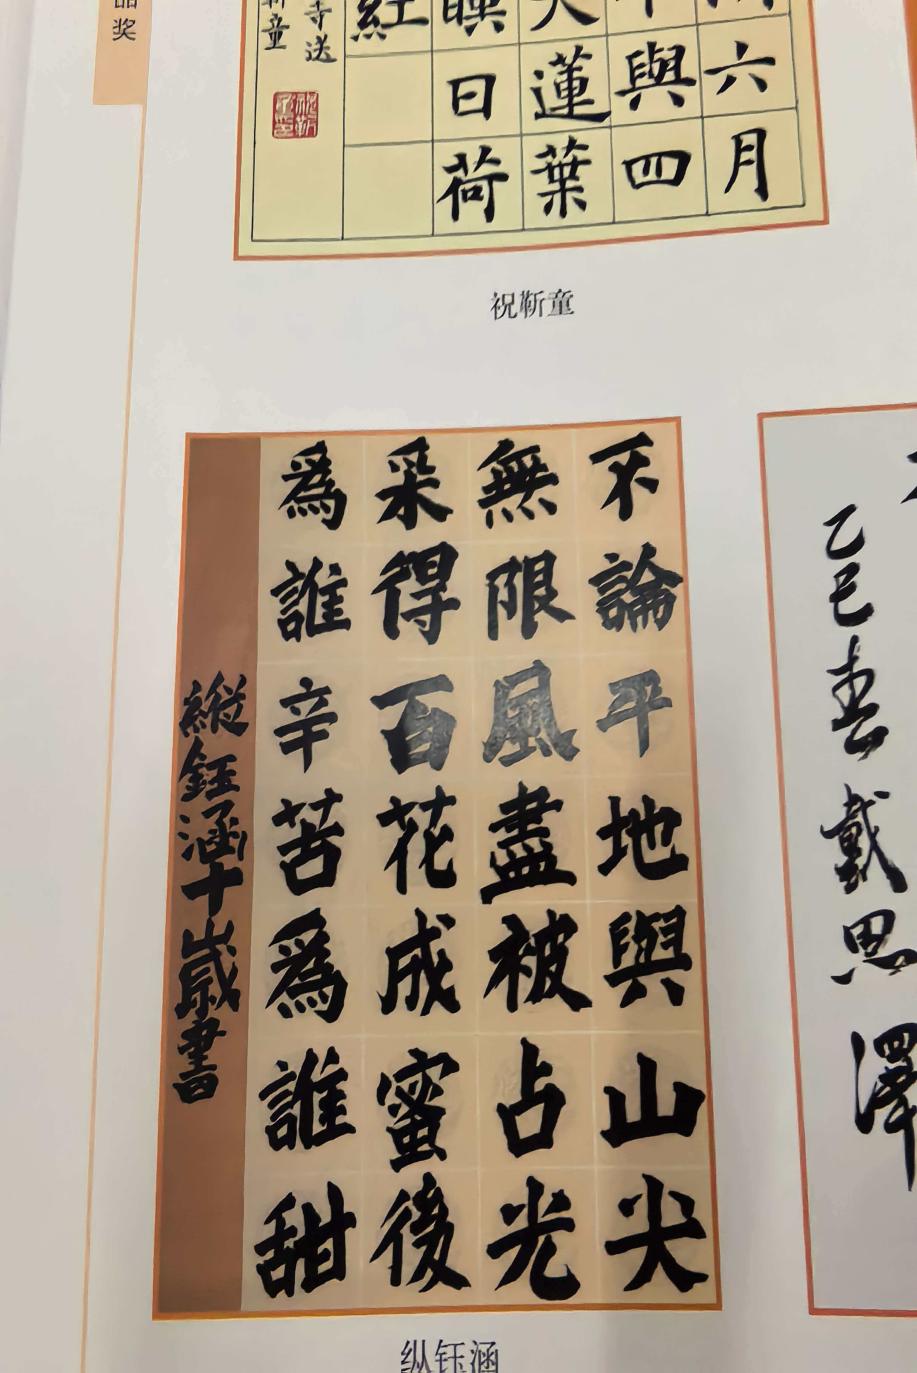 奖
六月
與四
天蓮葉
暎日荷
紅
寺送
靳童
祝靳童
不論平地與山尖
無限風盡被占光
采得百花成蜜後
爲誰辛苦爲誰甜
縱鈺涵十歲書
纵钰涵
乙巳春戴思澤